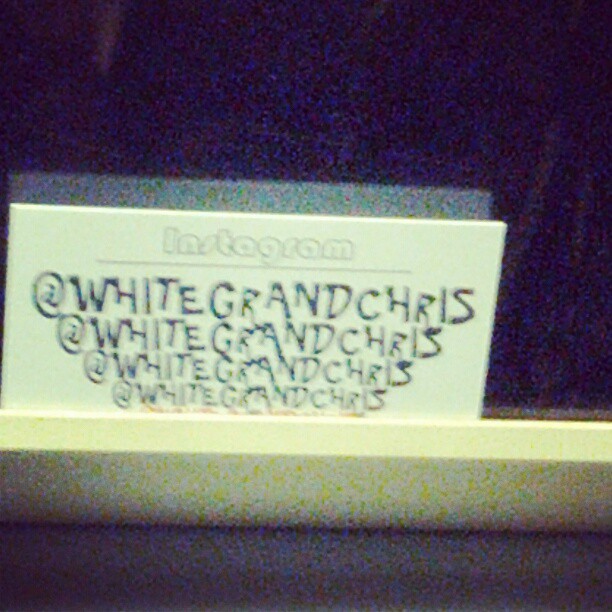 Instagram
@WHITEGRANDCHRIS
@WHITEGRANDCHRIS
@WHITEGRANDCHRIS
@WHITEGRANDCHRIS